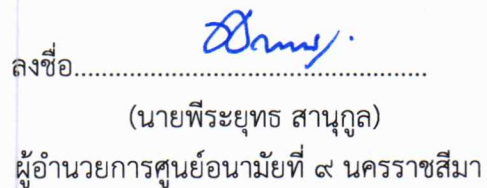 ลงชื่อ......................................................
(นายพีระยุทธ สานุกูล)
ผู้อำนวยการศูนย์อนามัยที่ ๙ นครราชสีมา